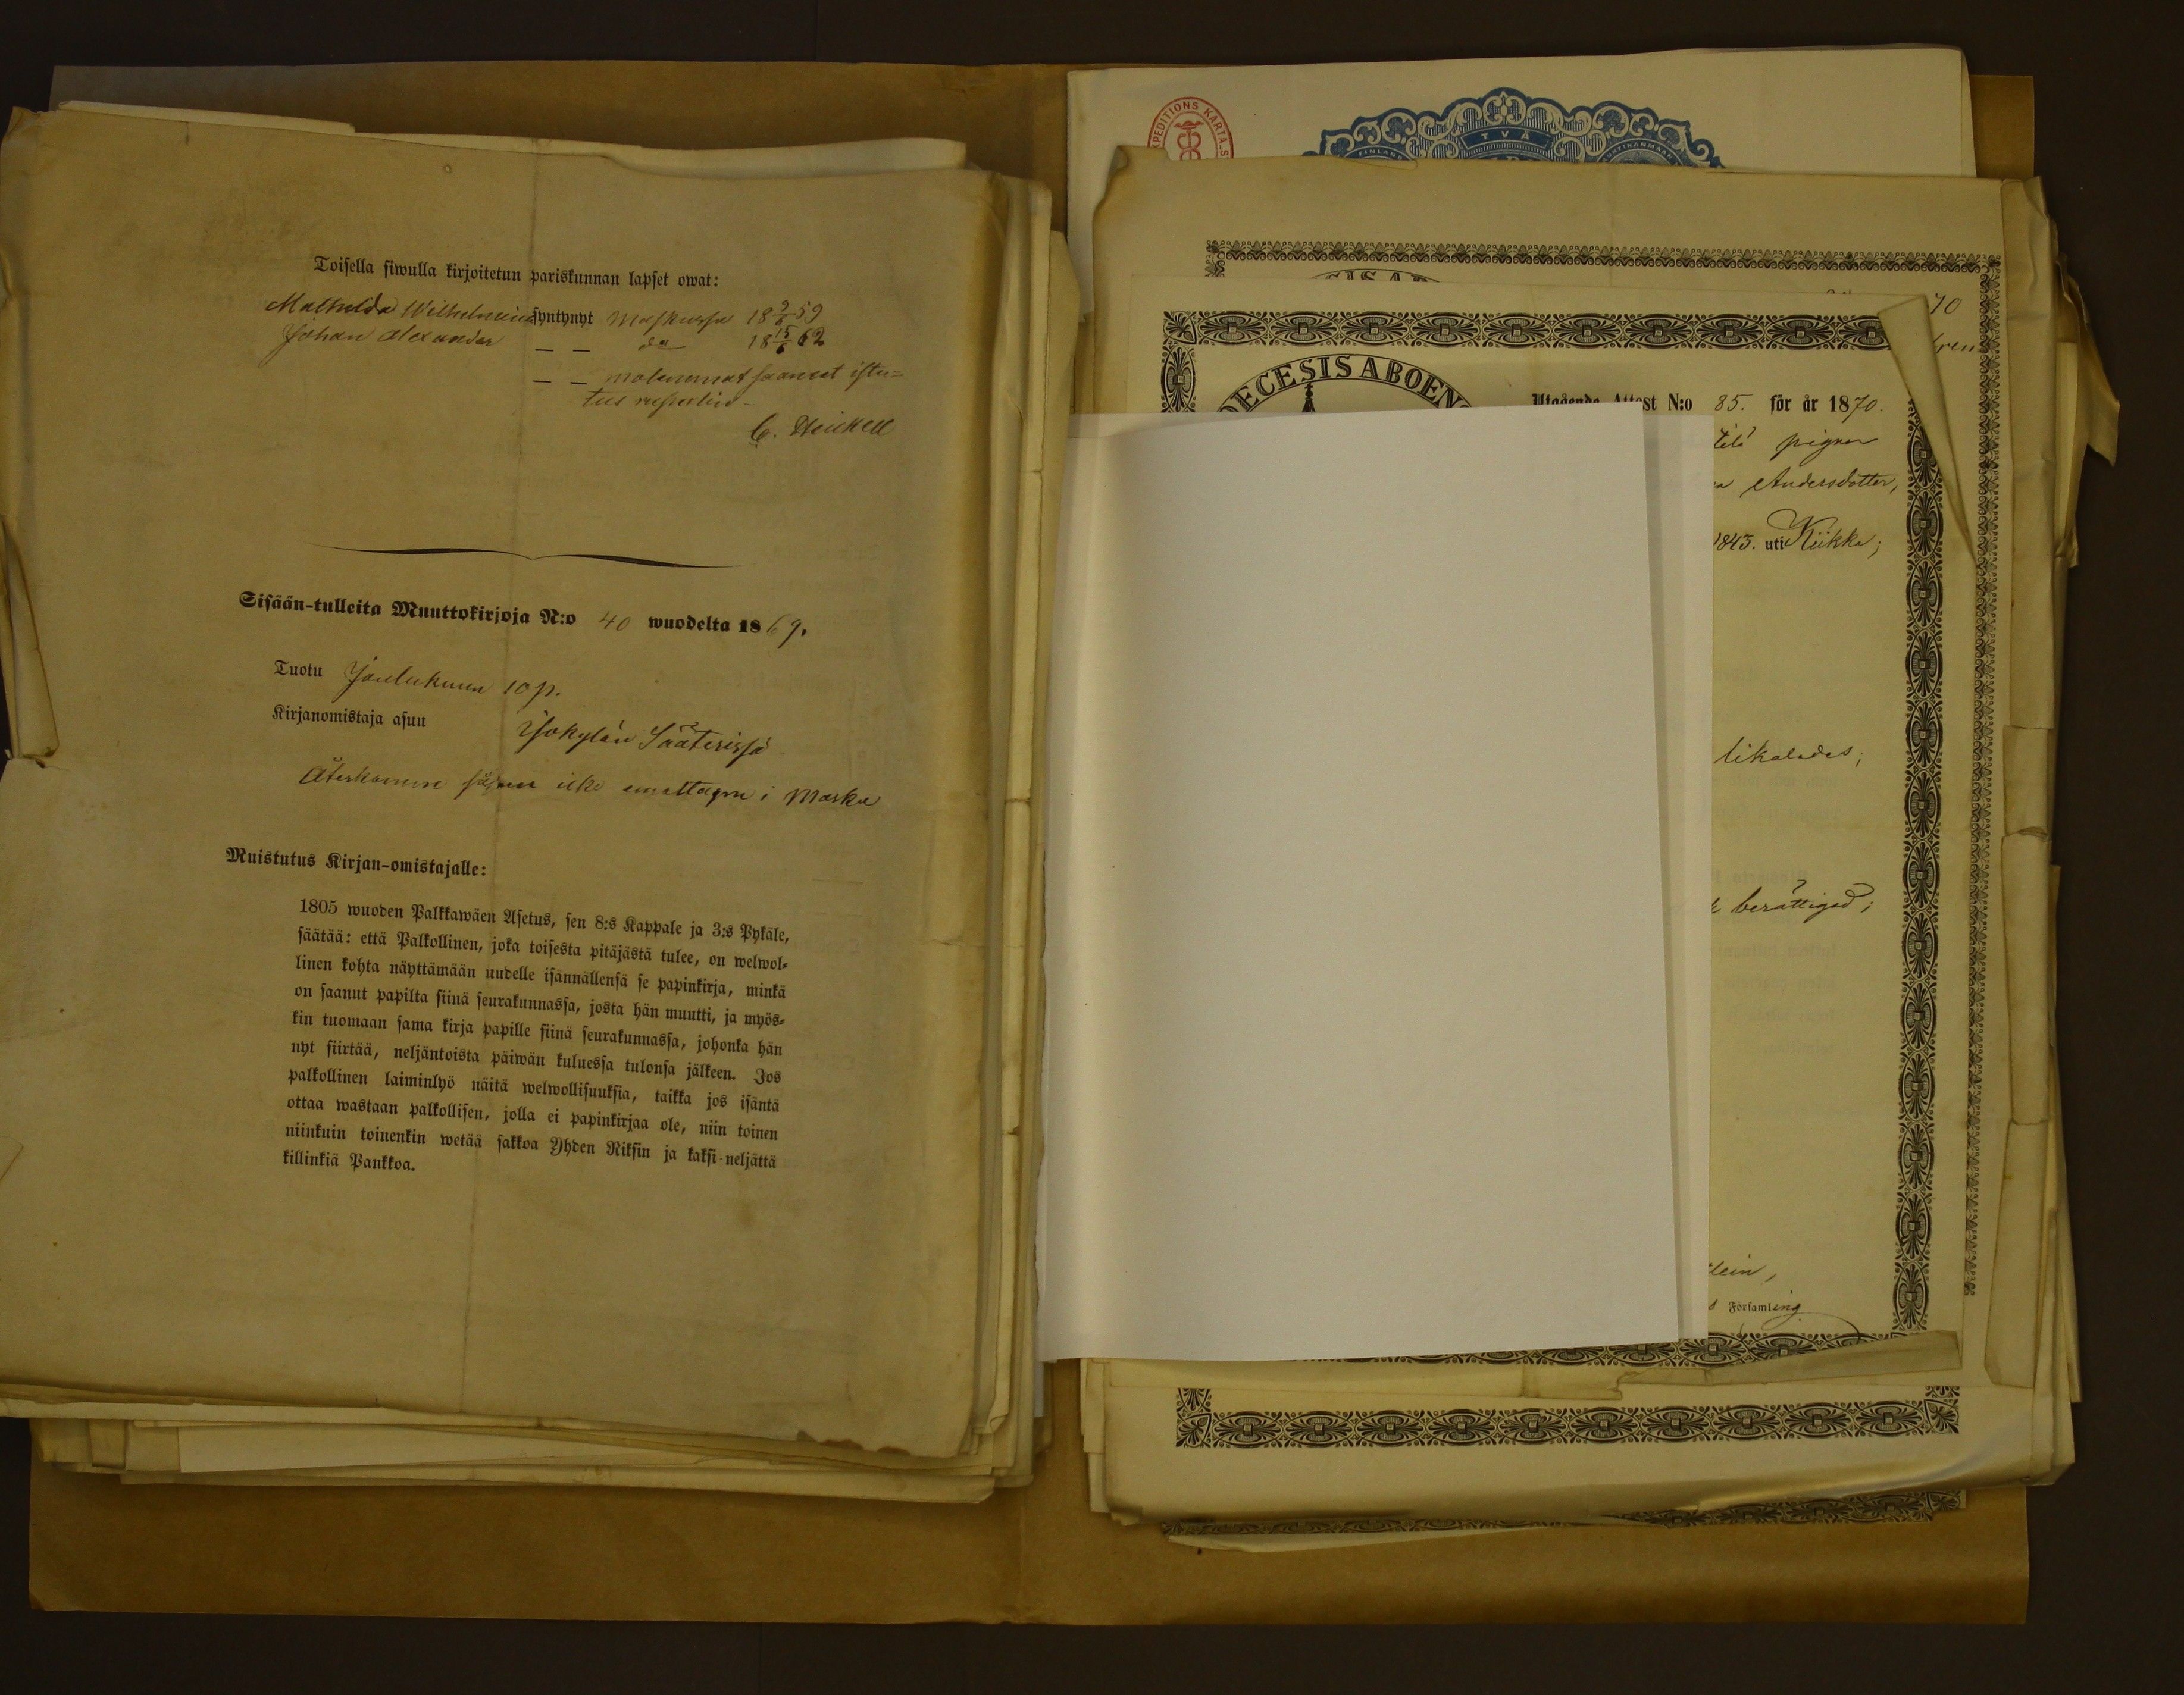 Toisella siwulla kirjoitetun pariskunnan lapset owat:
Mathilda Wilhelmina syntynyt Maskussa 18 9/6 59
Johan Alexander — — do 18 15/6 62
— — molemmat saaneet istu-
tus
C. Heikell
Sisään-tulleita Muuttokirjoja N:o 40 wuodelta 1869.
Tuotu Joulukuun 10 p.
Kirjanomistaja asuu Isokylän Säaterissä
Återkommen såsom icke emottagen i Masku
Muistutus Kirjan-omistajalle:
1805 wuoden Palkkawäen Asetus, sen 8:s Kappale ja 3:s Pykäle,
säätää: että Palkollinen, joka toisesta pitäjästä tulee, on welwol-
linen kohta näyttämään uudelle isännällensä se papinkirja, minkä
on saanut papilta siinä seurakunnassa, josta hän muutti, ja myös-
kin tuomaan sama kirja papille siinä seurakunnassa, johonka hän
nyt siirtää, neljäntoista päiwän kuluessa tulonsa jälkeen. Jos
palkollinen laiminlyö näitä welwollisuuksia, taikka jos isäntä
ottaa wastaan palkollisen, jolla ei papinkirjaa ole, niin toinen
niinkuin toinenkin wetää sakkoa Yhden Riksin ja kaksi neljättä
killinkiä Pankkoa.
EXPEDITIONS KARTA.S
TVÅ
FINLAND
70
DECESIS ABOEN
Utgående Attest N:o 85. för år 1870.
pigan
Andersdotter,
1843. uti Kiikka;
likaledes;
berättigad;
Församling